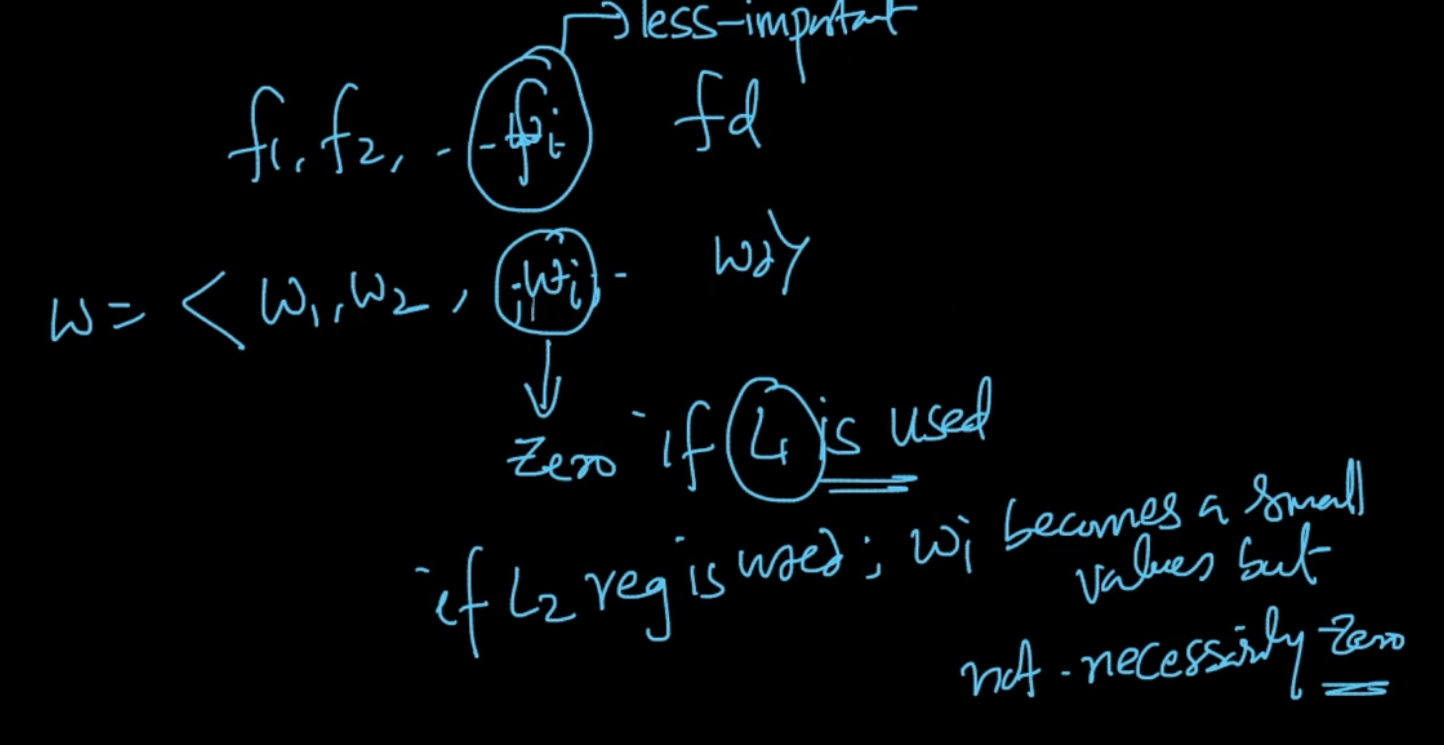 → less-important
f1, f2, - - fi fd
w = < w1, w2, , wi, - wd>
↓
Zero if L1 is used
if L2 reg is used; wi becomes a small
values but
not-necessarily zero